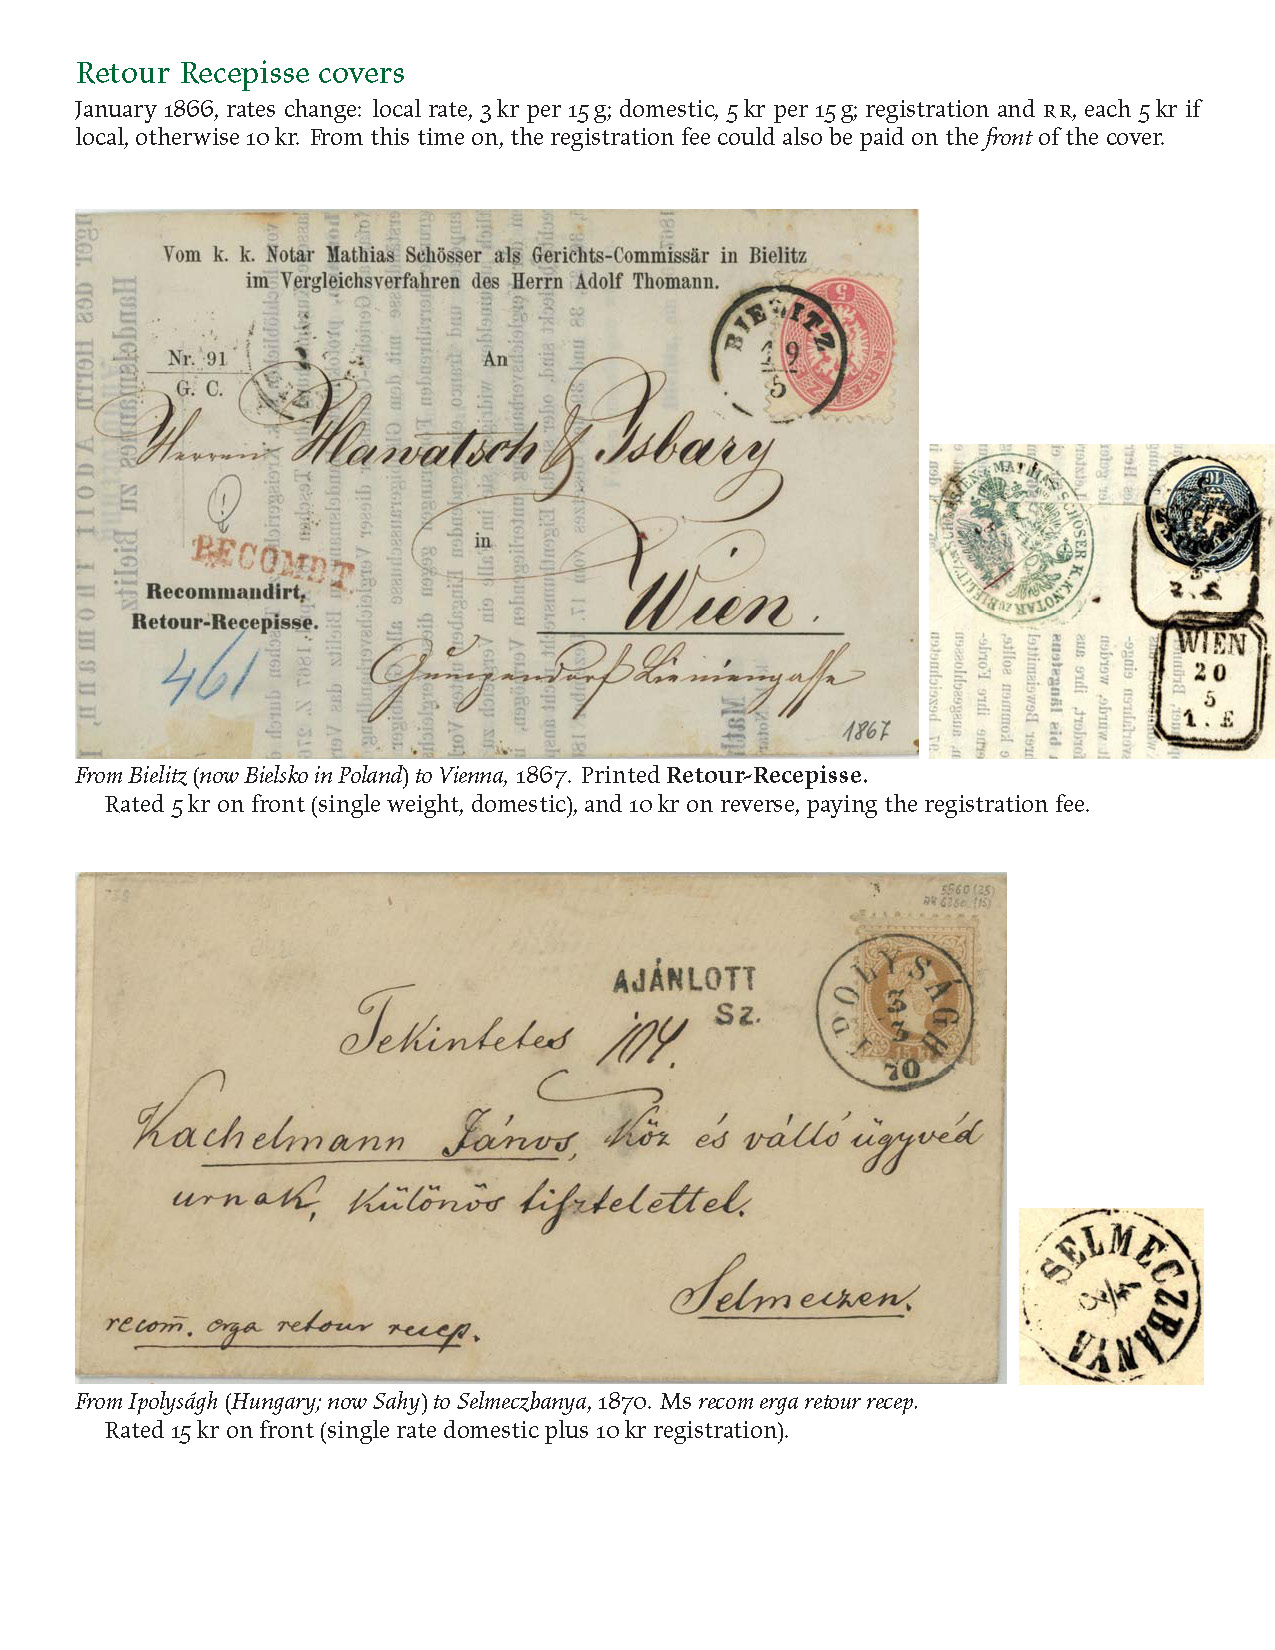 Retour Recepisse covers
January 1866, rates change: local rate, 3 kr per 15 g; domestic, 5 kr per 15 g; registration and RR, each 5 kr if
local, otherwise 10 kr. From this time on, the registration fee could also be paid on the front of the cover.
Vom k. k. Notar Mathias Schösser als Gerichts-Commissär in Bielitz
im Vergleichsverfahren des Herrn Adolf Thomann.
BIELITZ
19
5
Nr. 91
G. C.
An
Herren Hawatsch & Isbary
in
RECOMDT.
Recommandirt,
Retour-Recepisse.
Wien.
461
Gumpendorf Lieniengasse
1867
WIEN
20
5
1. E
From Bielitz (now Bielsko in Poland) to Vienna, 1867. Printed Retour-Recepisse.
Rated 5 kr on front (single weight, domestic), and 10 kr on reverse, paying the registration fee.
AJÁNLOTT
Sz.
104.
IPOLYSÁGH
70
Tekintetes
Kachelmann János, Köz és válló ügyvéd
urnak, különös tisztelettel.
Selmeczen.
recom. erga retour recep.
SELMECZBANYA
From Ipolyságh (Hungary; now Sahy) to Selmeczbanya, 1870. Ms recom erga retour recep.
Rated 15 kr on front (single rate domestic plus 10 kr registration).